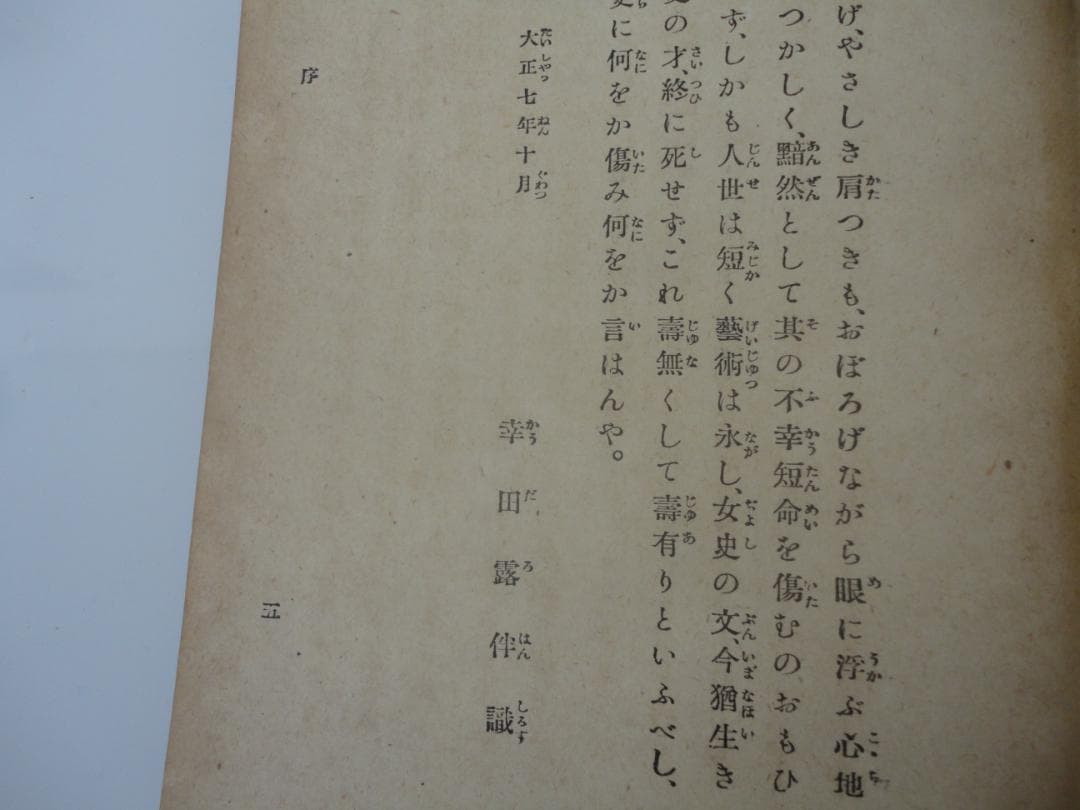 げ、やさしき肩つきも、おぼろげながら眼に浮ぶ心地
つかしく、黯然として其の不幸短命を傷むのおもひ
ず、しかも人世は短く藝術は永し、女史の文、今猶生き
の才、終に死せず、これ壽無くして壽有りといふべし、
に何をか傷み何をか言はんや。
大正七年十月
幸田露伴識
序
五